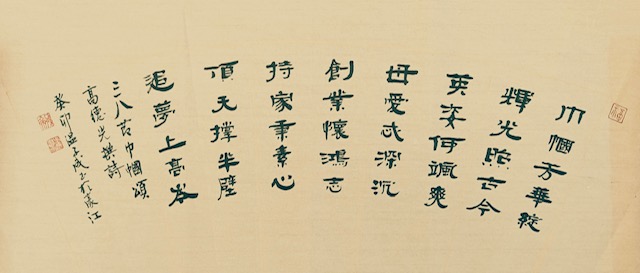 巾幗芳華綻
輝光照古今
英姿何颯爽
母愛忒深沉
創業懷鴻志
持家秉素心
頂天撐半壁
追夢上高岑
三八古巾幗頌
高德光撰詩
癸卯